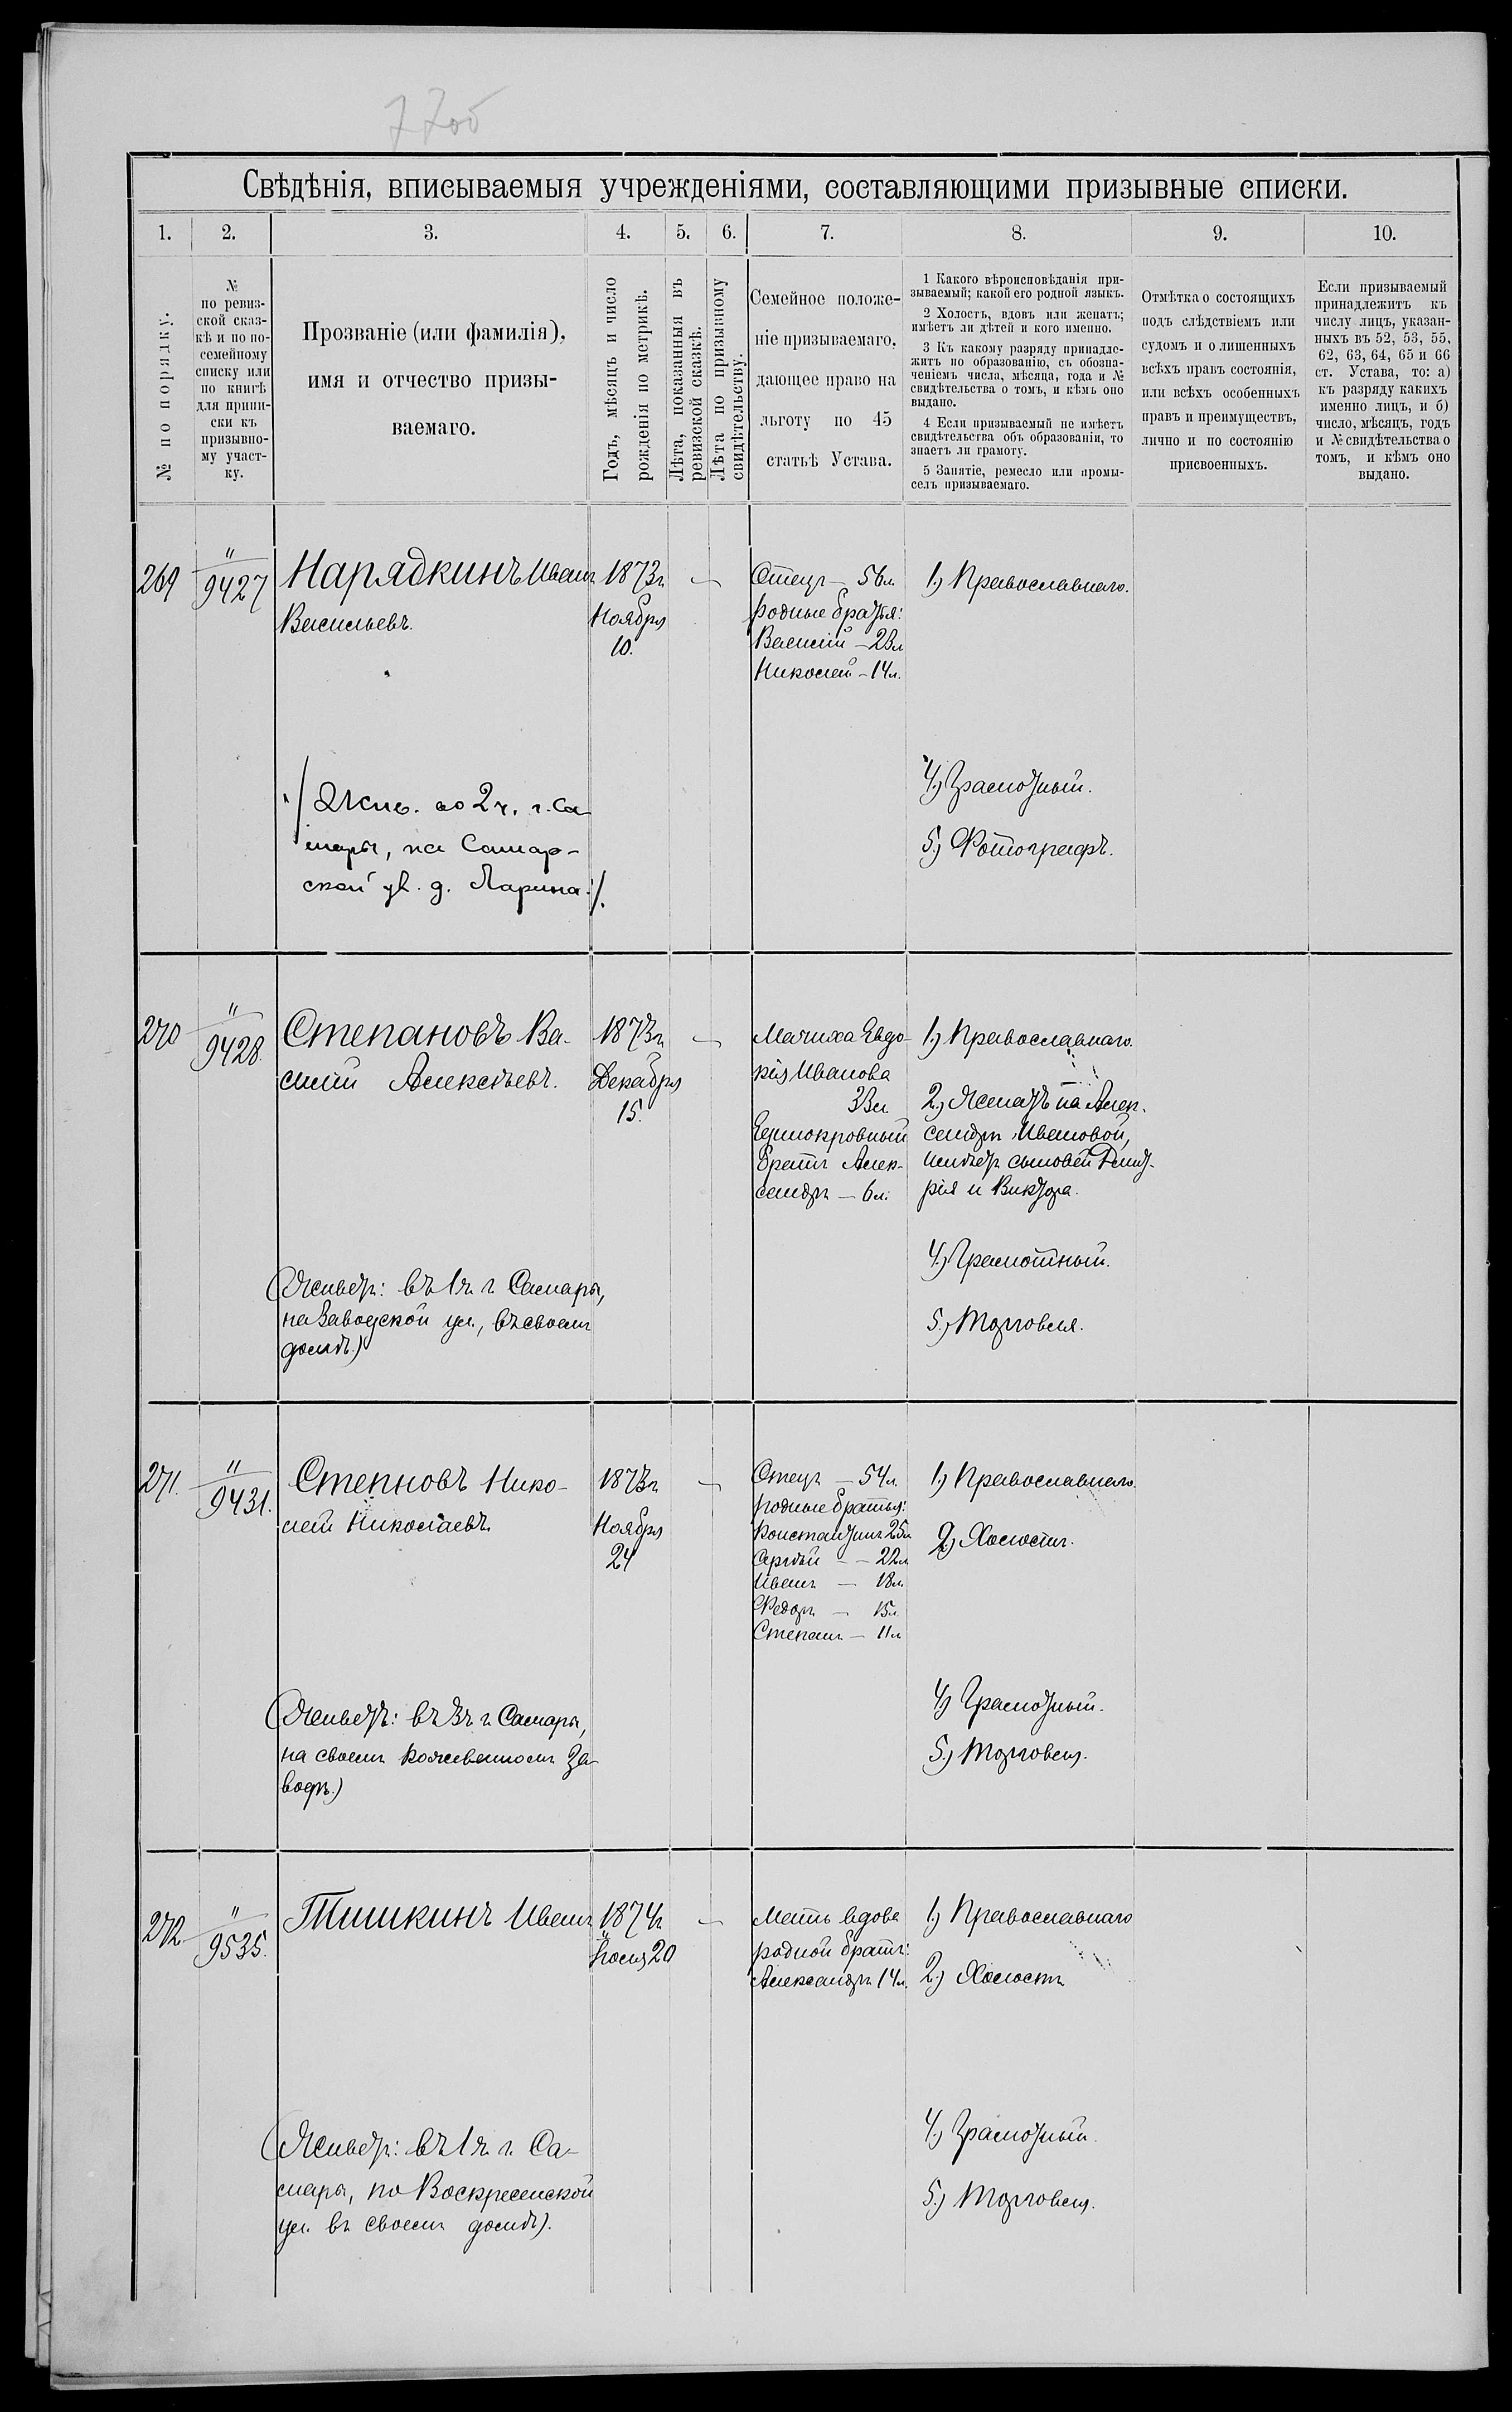 77об
Свѣдѣнія, вписываемыя учрежденіями, составляющими призывные списки.
1. 2. 3. 4. 5. 6. 7. 8. 9. 10.
№ по порядку.
№
по ревиз-
ской сказ-
кѣ и по по-
семейному
списку или
по книгѣ
для припи-
ски къ
призывно-
му участ-
ку.
Прозваніе (или фамилія),
имя и отчество призы-
ваемаго.
Годъ, мѣсяцъ и число
рожденія по метрикѣ.
Лѣта, показанныя въ
ревизской сказкѣ.
Лѣта по призывному
свидѣтельству.
Семейное положе-
ніе призываемаго,
дающее право на
льготу по 45
статьѣ Устава.
1 Какого вѣроисповѣданія при-
зываемый; какой его родной языкъ.
2 Холостъ, вдовъ или женатъ;
имѣетъ ли дѣтей и кого именно.
3 Къ какому разряду принадле-
житъ по образованію, съ обозна-
ченіемъ числа, мѣсяца, года и №
свидѣтельства о томъ, и кѣмъ оно
выдано.
4 Если призываемый не имѣетъ
свидѣтельства объ образованіи, то
знаетъ ли грамоту.
5 Занятіе, ремесло или промы-
селъ призываемаго.
Отмѣтка о состоящихъ
подъ слѣдствіемъ или
судомъ и о лишенныхъ
всѣхъ правъ состоянія,
или всѣхъ особенныхъ
правъ и преимуществъ,
лично и по состоянію
присвоенныхъ.
Если призываемый
принадлежитъ къ
числу лицъ, указан-
ныхъ въ 52, 53, 55,
62, 63, 64, 65 и 66
ст. Устава, то: а)
къ разряду какихъ
именно лицъ, и б)
число, мѣсяцъ, годъ
и № свидѣтельства о
томъ, и кѣмъ оно
выдано.
269
"
9427
Нарядкинъ Иванъ
Васильевъ.
1873г.
Ноября
10.
—
Отецъ — 56л.
родные братья:
Василій — 23л
Николай — 14л.
1.) Православнаго.
4.) Грамотный.
5.) Фотографъ.
/ Жив. во 2 ч. г. Са
мары, на Самар-
ской ул. д. Ларина. /.
270
"
9428.
Степановъ Ва-
силій Алексѣевъ.
1873г.
Декабря
15.
—
Мачиха Евдо-
кія Иванова
33л.
Единокровный
братъ Алек-
сандръ — 6л.
1.) Православнаго.
2.) Женатъ на Алек-
сандрѣ Ивановой,
имѣетъ сыновей Дмит-
рія и Виктора.
4.) Грамотный.
5.) Торговля.
(Живетъ: въ 1ч. г. Самары,
на Заводской ул., въ своемъ
домѣ.)
271.
"
9431.
Степновъ Нико-
лай Николаевъ.
1873г.
Ноября
24
—
Отецъ — 54л.
родные братья:
Константинъ 25л.
Сергѣй — — 22л.
Иванъ — 18л.
Федоръ — 15л.
Степанъ — 11л.
1.) Православнаго.
2.) Холостъ.
4.) Грамотный.
5.) Торговля.
(Живетъ: въ 3ч. г. Самары,
на своемъ кожевенномъ за-
водѣ.)
272
"
9535.
Тишкинъ Иванъ
1874г.
20
—
Мать вдова
родной братъ:
Александръ 14л.
1.) Православнаго
2.) Холостъ
4.) Грамотный.
5.) Торговля.
(Живетъ: въ 1ч. г. Са-
мары, по Воскресенской
ул. въ своемъ домѣ).